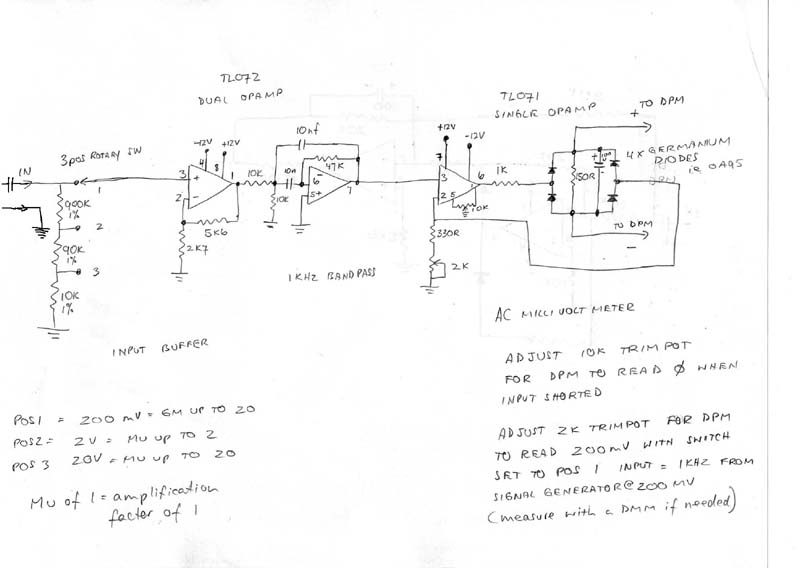 TL072
DUAL OPAMP
TL071
SINGLE OPAMP
TO DPM
+
-12V
+12V
10nf
+12V
-12V
4x GERMANIUM
DIODES
ie OA95
3POS ROTARY SW
IN
4
8
3
+
2
-
1
10K
10n
47K
6
-
5+
7
7
3
+
2
-
6
5
1
10K
1K
150R
+
-
1
900K
1%
2
90K
1%
3
10K
1%
5K6
2K7
10K
1KHZ BANDPASS
330R
2K
TO DPM
-
INPUT BUFFER
AC MILLIVOLTMETER
ADJUST 10K TRIMPOT
FOR DPM TO READ Ø WHEN
INPUT SHORTED
ADJUST 2K TRIMPOT FOR DPM
TO READ 200mV WITH SWITCH
SET TO POS 1 INPUT = 1KHZ FROM
SIGNAL GENERATOR @ 200MV
(measure with a DMM if needed)
POS1 = 200 mV = GM UP TO 20
POS2 = 2V = MU UP TO 2
POS 3 20V = MU UP TO 20
MU of 1 = amplification
factor of 1